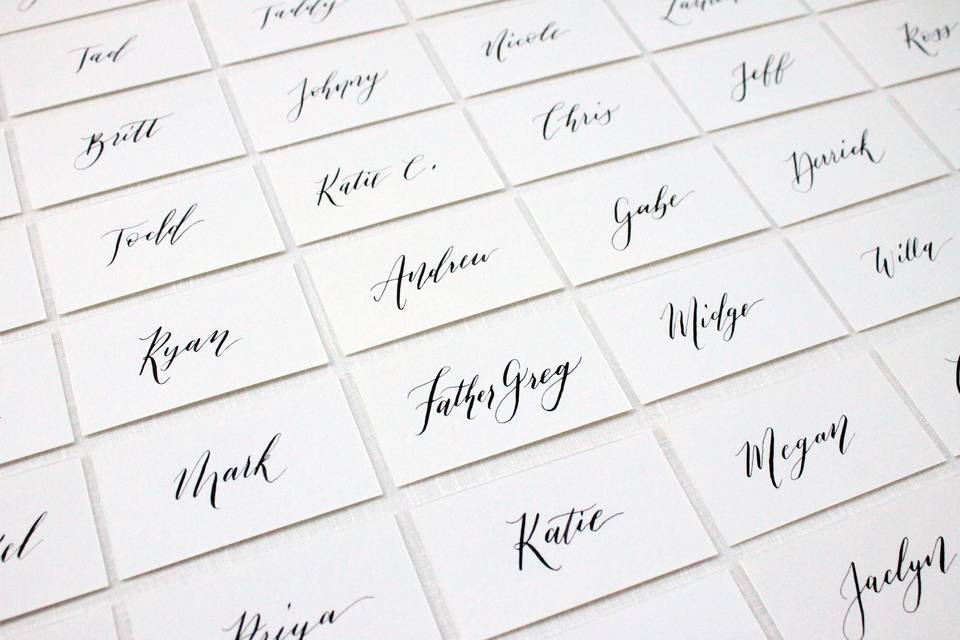 Taddy
Tad
Nicole
Johnny
Jeff
Ross
Britt
Chris
Katie C.
Derrick
Todd
Gabe
Andrew
Willa
Ryan
Midge
Father Greg
Mark
Megan
Katie
Jaclyn
Priya